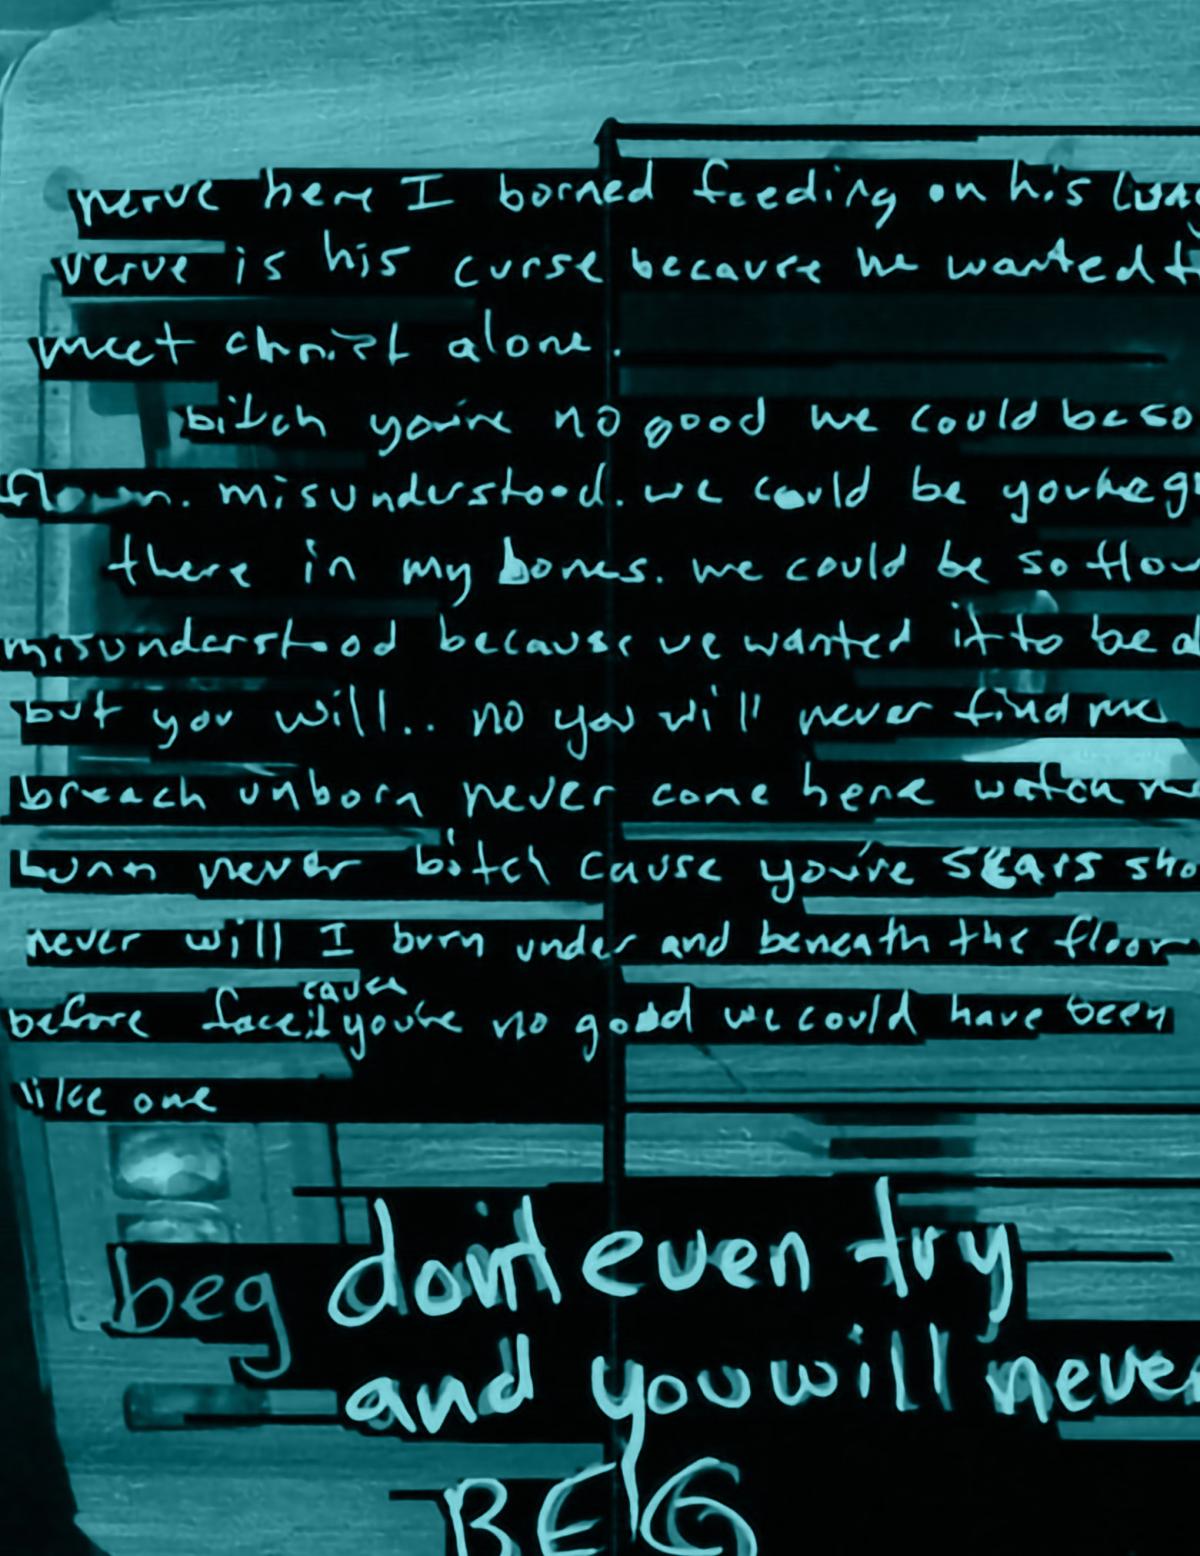 nerve here I borned feeding on his
verve is his curse because he wanted
meet christ alone.
bitch you're no good we could be so
misunderstood. we could be
there in my bones. we could be so
misunderstood because we wanted it to be
but you will.. no you will never find me
breach unborn never come here watch
never bitch cause you're scars
never will I burn under and beneath the floor
cause
before you're no good we could have been
like one
beg don't even try
and you will never
BEG